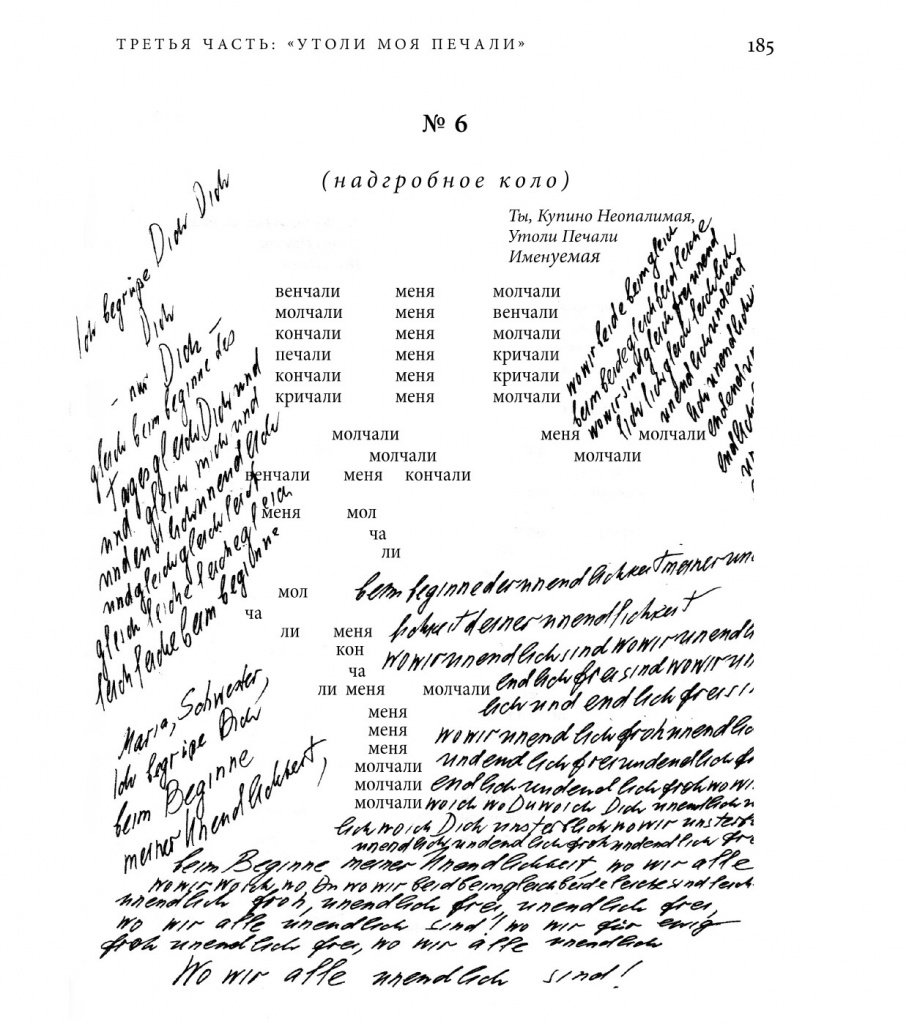 ТРЕТЬЯ ЧАСТЬ: «УТОЛИ МОЯ ПЕЧАЛИ» 185
№ 6
(надгробное коло)
Ты, Купино Неопалимая,
Утоли Печали
Именуемая
венчали меня молчали
молчали меня венчали
кончали меня молчали
печали меня кричали
кончали меня кричали
кричали меня молчали
молчали меня молчали
молчали молчали
венчали меня кончали
меня мол
ча
ли
мол
ча
ли меня
кон
ча
ли меня молчали
меня
меня
меня
молчали
молчали
молчали
Ich begrüße Dich Dich
Dich
– nur Dich –
gleich beim beginne des
Tages gleich Dich und
und gleich mich und
und endlich unendlich
und gleich gleich leich
gleich leiche leiche gleich
leich leiche beim beginne
Maria, Schwester,
Ich begrüße Dich
beim Beginne
meiner Unendlichkeit,
wo wir beide beim gleich
beim beide gleich beid leiche
wo wir sind gleich frei unend
lich lich gleich leich lich
unendlich und unend
lich unendlich
endend un
endlich
un
beim beginne der unendlichkeit meiner un
lichkeit deiner unendlichkeit
wo wir unendlich sind wo wir unendl
endlich frei sind wo wir un
lich und endlich frei si
wo wir unendlich froh unendlic
und endlich frei und endlich f
endlich und endlich froh wo wi
wo ich wo Du wo ich Dich unendlich
lich wo ich Dich unsterblich wo wir unsterb
unendlich und endlich froh und endlich fre
beim Beginne meiner Unendlichkeit, wo wir alle
wo wir wo ich, wo Du wo wir beid beim gleich beide leiche sind leich
unendlich froh, unendlich frei, unendlich frei,
wo wir alle unendlich sind! wo wir für ewig
froh unendlich frei, wo wir alle unendlich
Wo wir alle unendlich sind!